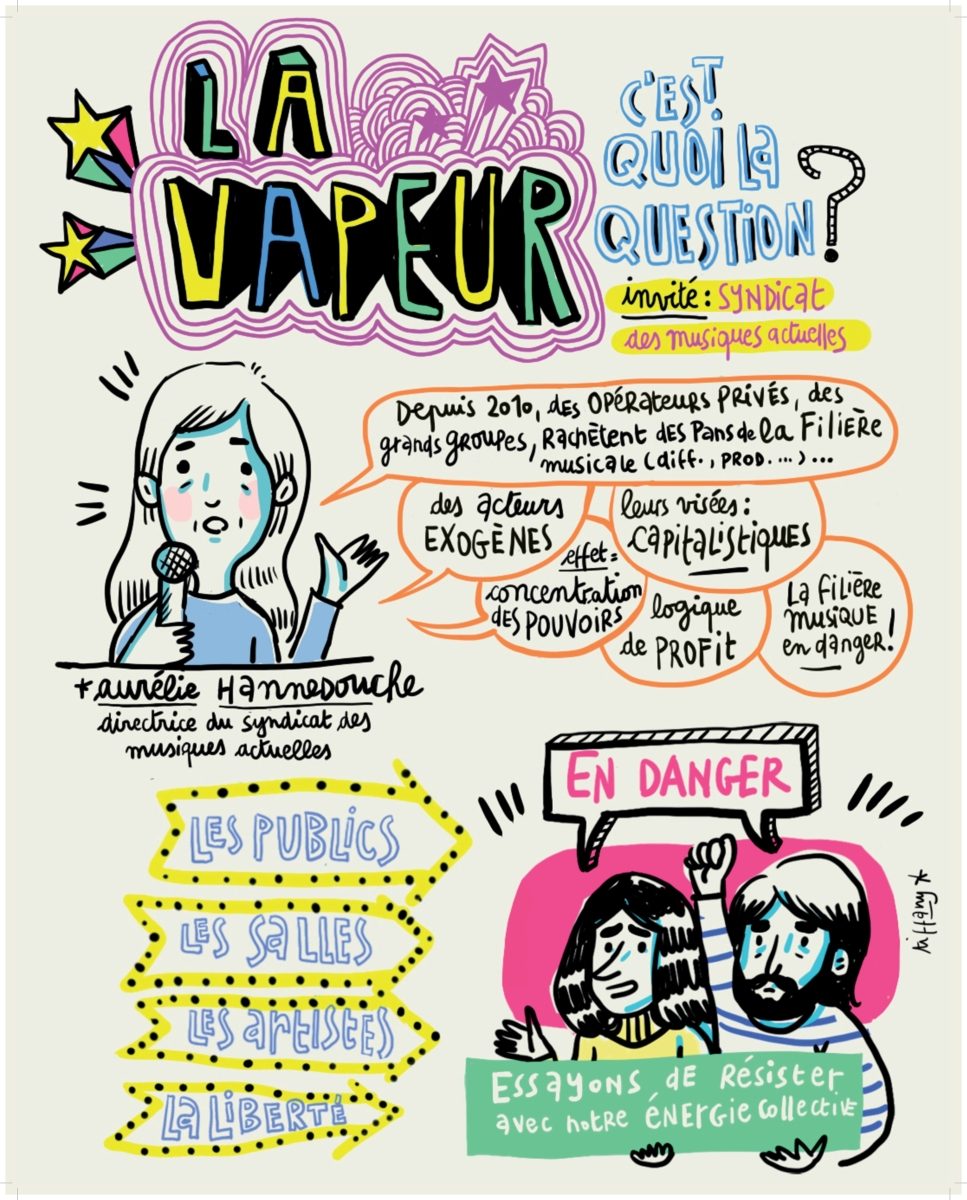 LA
VAPEUR
C'EST
QUOI LA
QUESTION ?
invité : SYNDICAT
des musiques actuelles
Depuis 2010, des OPÉRATEURS PRIVÉS, des
grands GROUPES, Rachètent des Pans de la FiliÈRE
musicale (diff., PROD. ...) ...
des acteurs
EXOGÈNES
leurs visées :
CAPITALISTIQUES
effet =
concentration
des POUVOIRS
logique
de PROFIT
LA FILIÈRE
MUSIQUE
en danger !
*aurélie Hannedouche
directrice du syndicat des
musiques actuelles
EN DANGER
LES PUBLICS
LES SALLES
LES artistes
LA LIBERTÉ
ESSAYONS DE RÉSISTER
avec notre ÉNERGIE collective
tiffany*